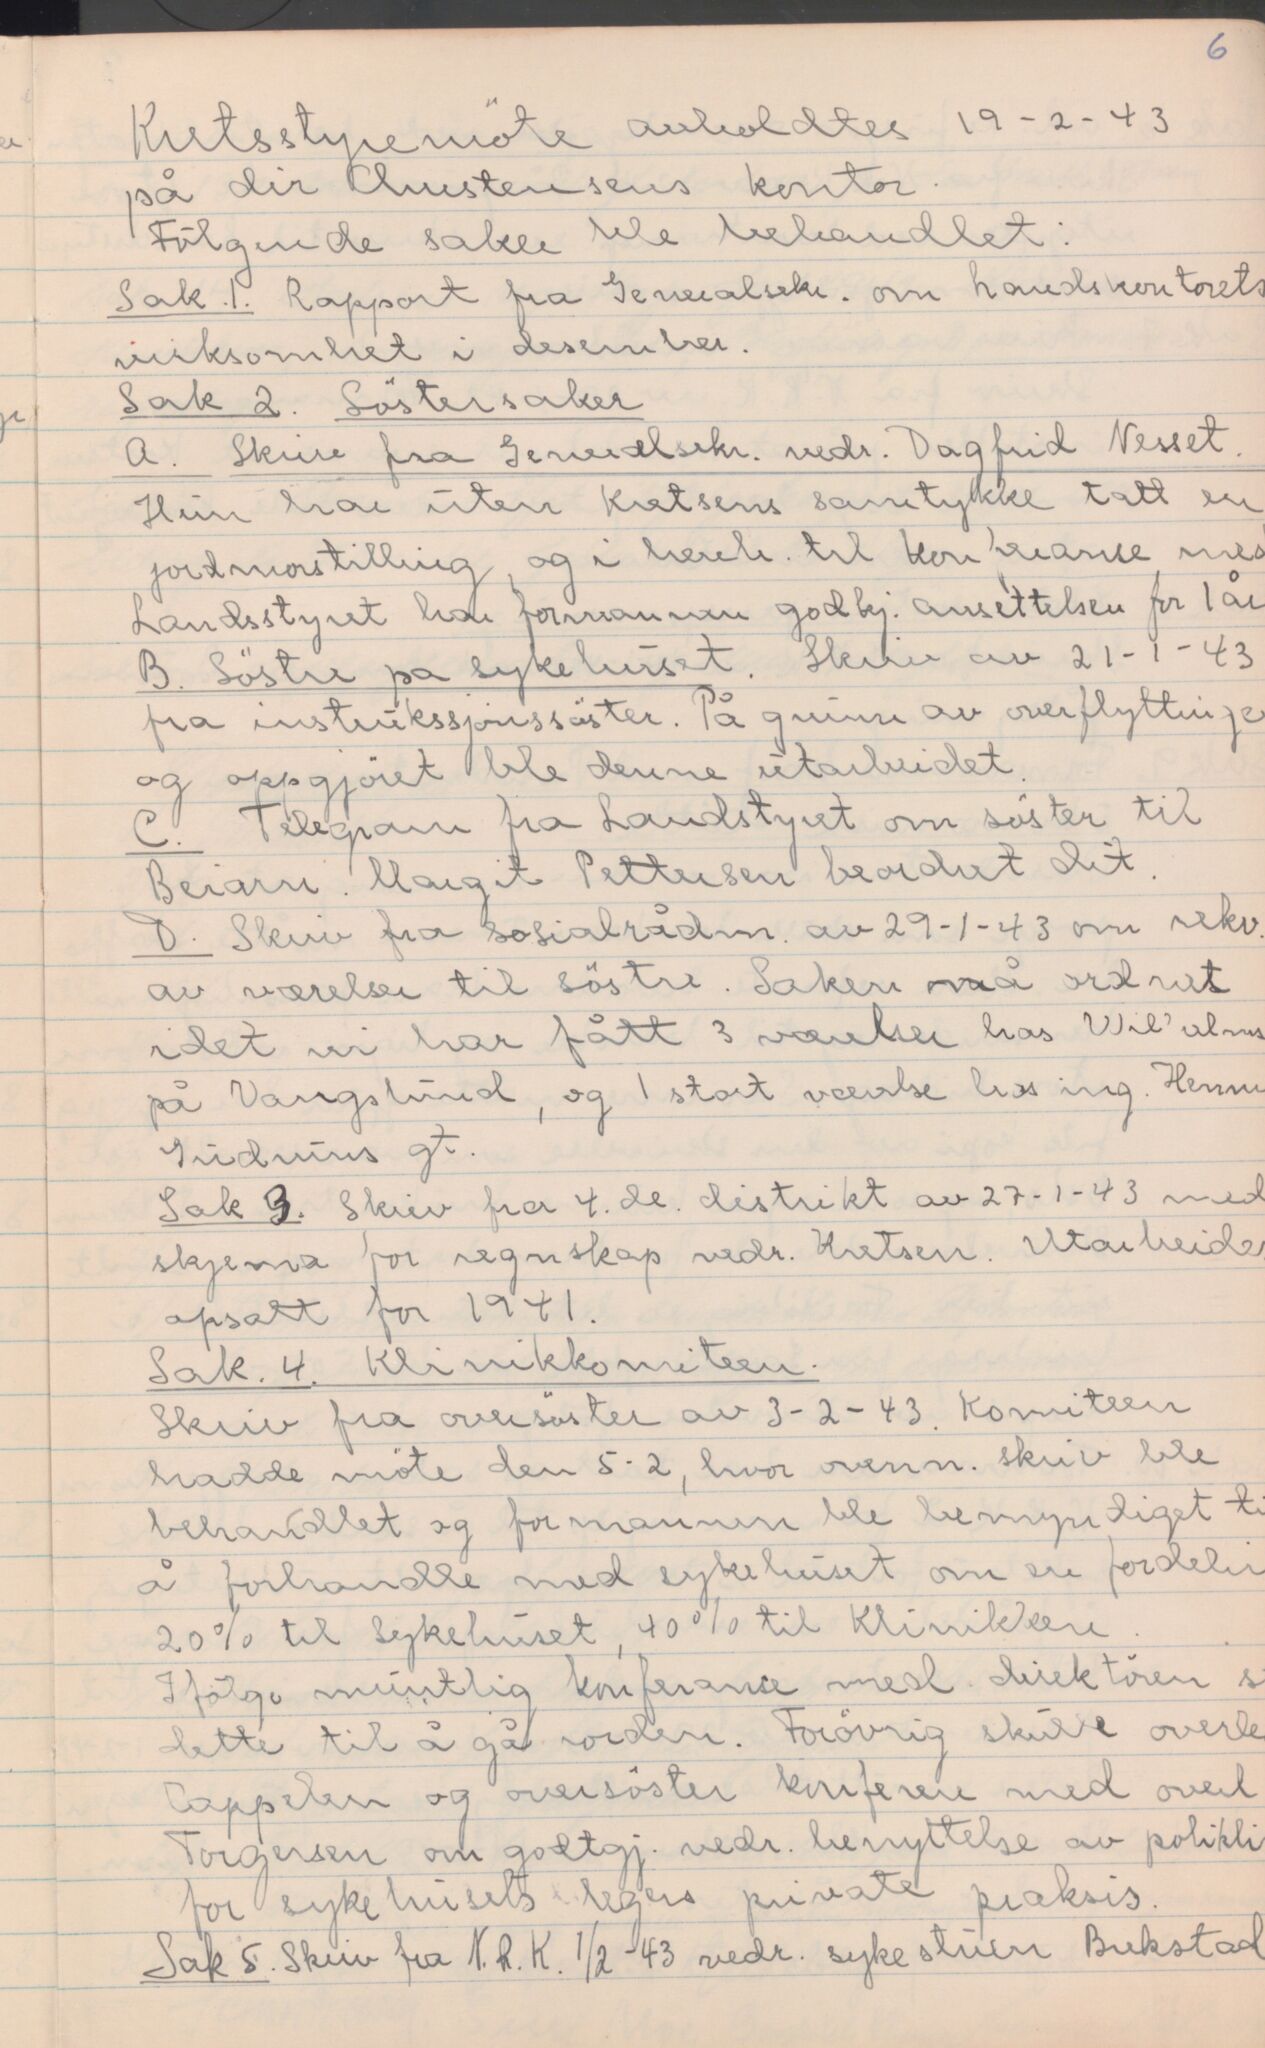 6
Kretsstyremöte avholdtes 19-2-43
på dir Christensens kontor.
Fölgende saker ble behandlet:
Sak.1. Rapport fra Generalsekr. om handskontorets
virksomhet i desember.
Sak 2. Söstersaker
A. Skriv fra Generalsekr. vedr. Dagfrid Nesset.
Hun har uten Kretsens samtykke tatt en
jordmorstilling, og i henh. til konferanse med
Landsstyret har formannen godkj. ansettelsen for 1 år
B. Söstre på sykehuset. Skriv av 21-1-43
fra instruksjonssöster. På grunn av overflyttinge
og oppgjöret ble denne utarbeidet.
C. Telegram fra Landstyret om söster til
Beiarn. Margit Pettersen beordret dit.
D. Skriv fra sosialrådm. av 29-1-43 om rekv.
av værelser til söstre. Saken må ordnet
idet vi har fått 3 værelser hos
på Vangslund, og 1 stort værelse hos ing.
Gudruns gt.
Sak 3. Skriv fra 4.de. distrikt av 27-1-43 med
skjema for regnskap vedr. Kretsen. Utarbeide
opsatt for 1941.
Sak. 4. Klinikkomiteen.
Skriv fra oversöster av 3-2-43. Komiteen
hadde möte den 5-2, hvor ovenn. skriv ble
behandlet og formannen ble bemyndiget ti
å forhandle med sykehuset om en fordelin
20% til Sykehuset, 40% til Klinikken.
Ifölge muntlig konferanse med direktören s
dette til å gå iorden. Forövrig skulle overle
Cappelen og oversöster konferere med overl
Torgersen om godtgj. vedr. benyttelse av polikli
for sykehusets legers private praksis.
Sak 5. Skriv fra N.R.K. 1/2-43 vedr. sykestuen Bukstad